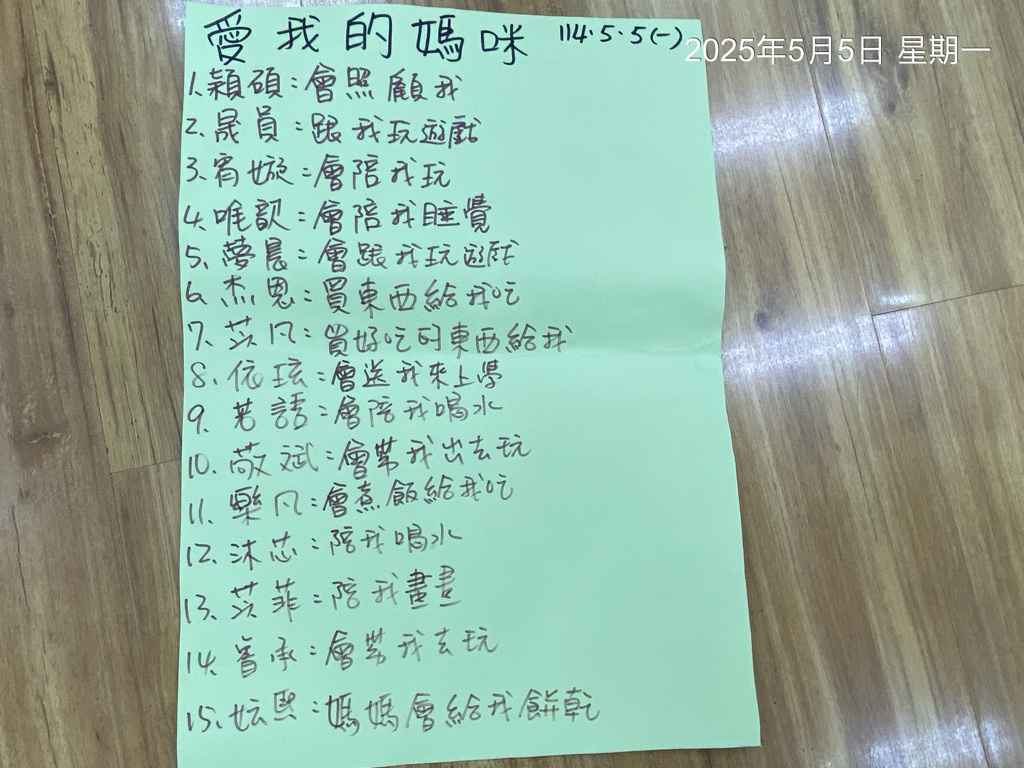 愛我的媽咪 114.5.5(一)
2025年5月5日 星期一
1.穎碩:會照顧我
2.晟員:跟我玩遊戲
3.宥嫙:會陪我玩
4.唯歆:會陪我睡覺
5.夢晨:會跟我玩遊戲
6.杰恩:買東西給我吃
7.苡凡:買好吃的東西給我
8.依玹:會送我來上學
9.若語:會陪我喝水
10.敬斌:會帶我出去玩
11.樂凡:會煮飯給我吃
12.沐芯:陪我喝水
13.苡菲:陪我畫畫
14.承:會帶我去玩
15.妘熙:媽媽會給我餅乾